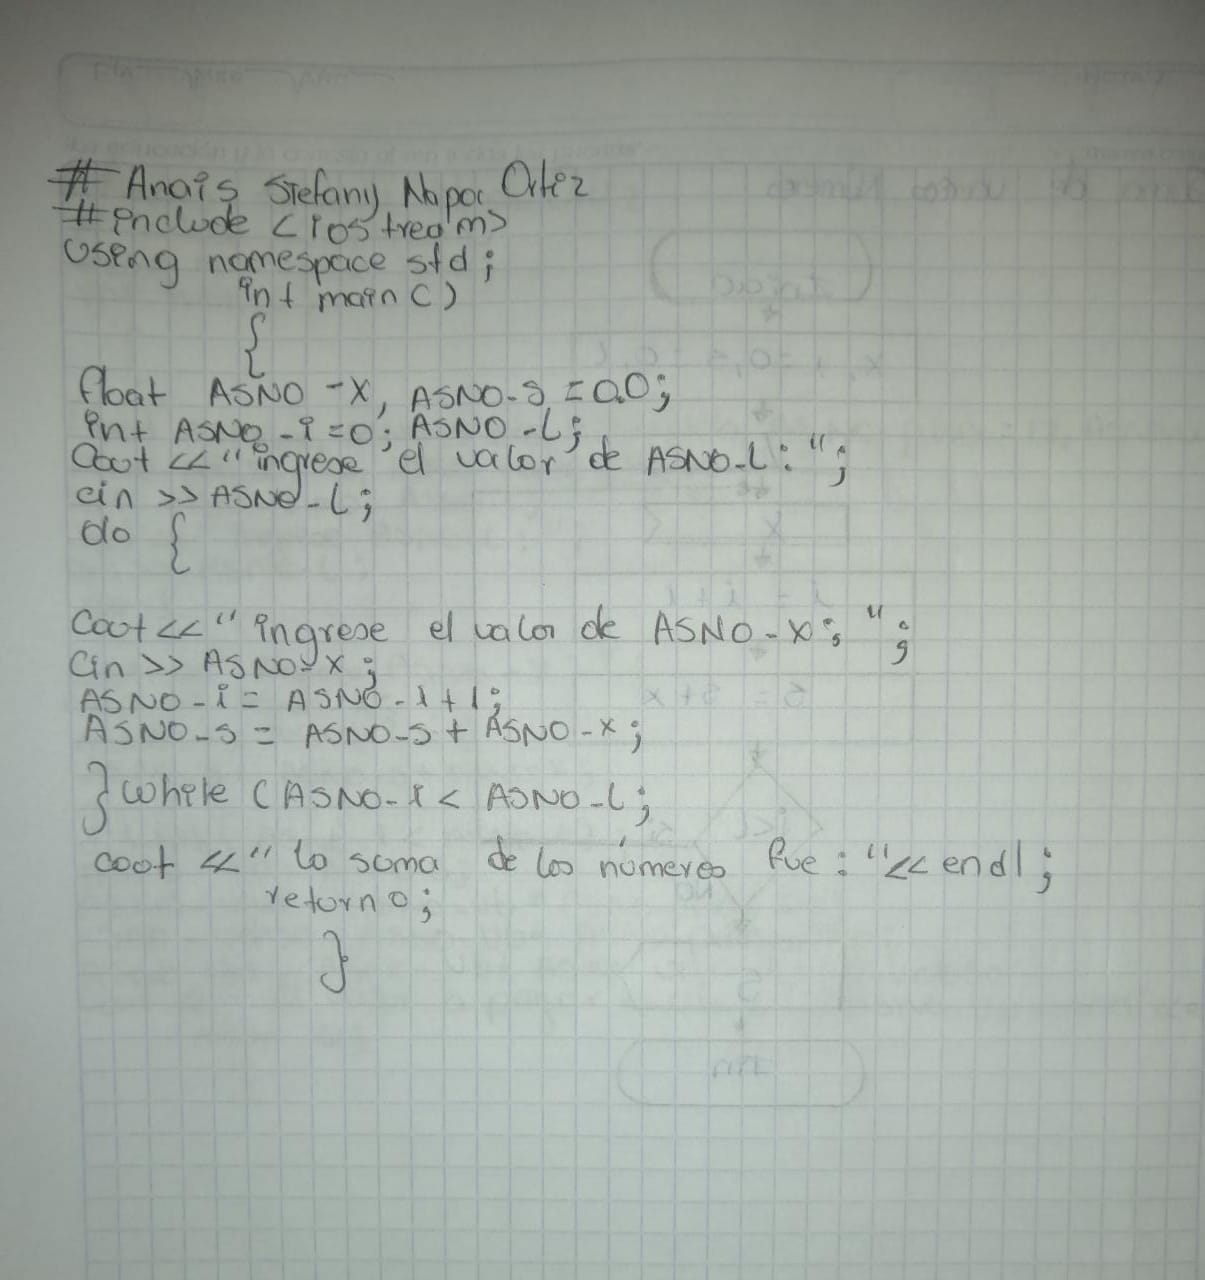 # Anais Stefany Napor Ortiz
#include <iostream>
Using namespace std;
int main()
{
float ASNO-X, ASNO-S = 0.0;
int ASNO-i=0; ASNO-L;
Cout << "ingrese el valor de ASNO-L: ";
cin >> ASNO-L;
do {
Cout << "ingrese el valor de ASNO-X: ";
Cin >> ASNO-X;
ASNO-i = ASNO-i+1;
ASNO-S = ASNO-S + ASNO-X;
} while (ASNO-i < ASNO-L;
cout << "la suma de los números fue: "<< endl;
return 0;
}